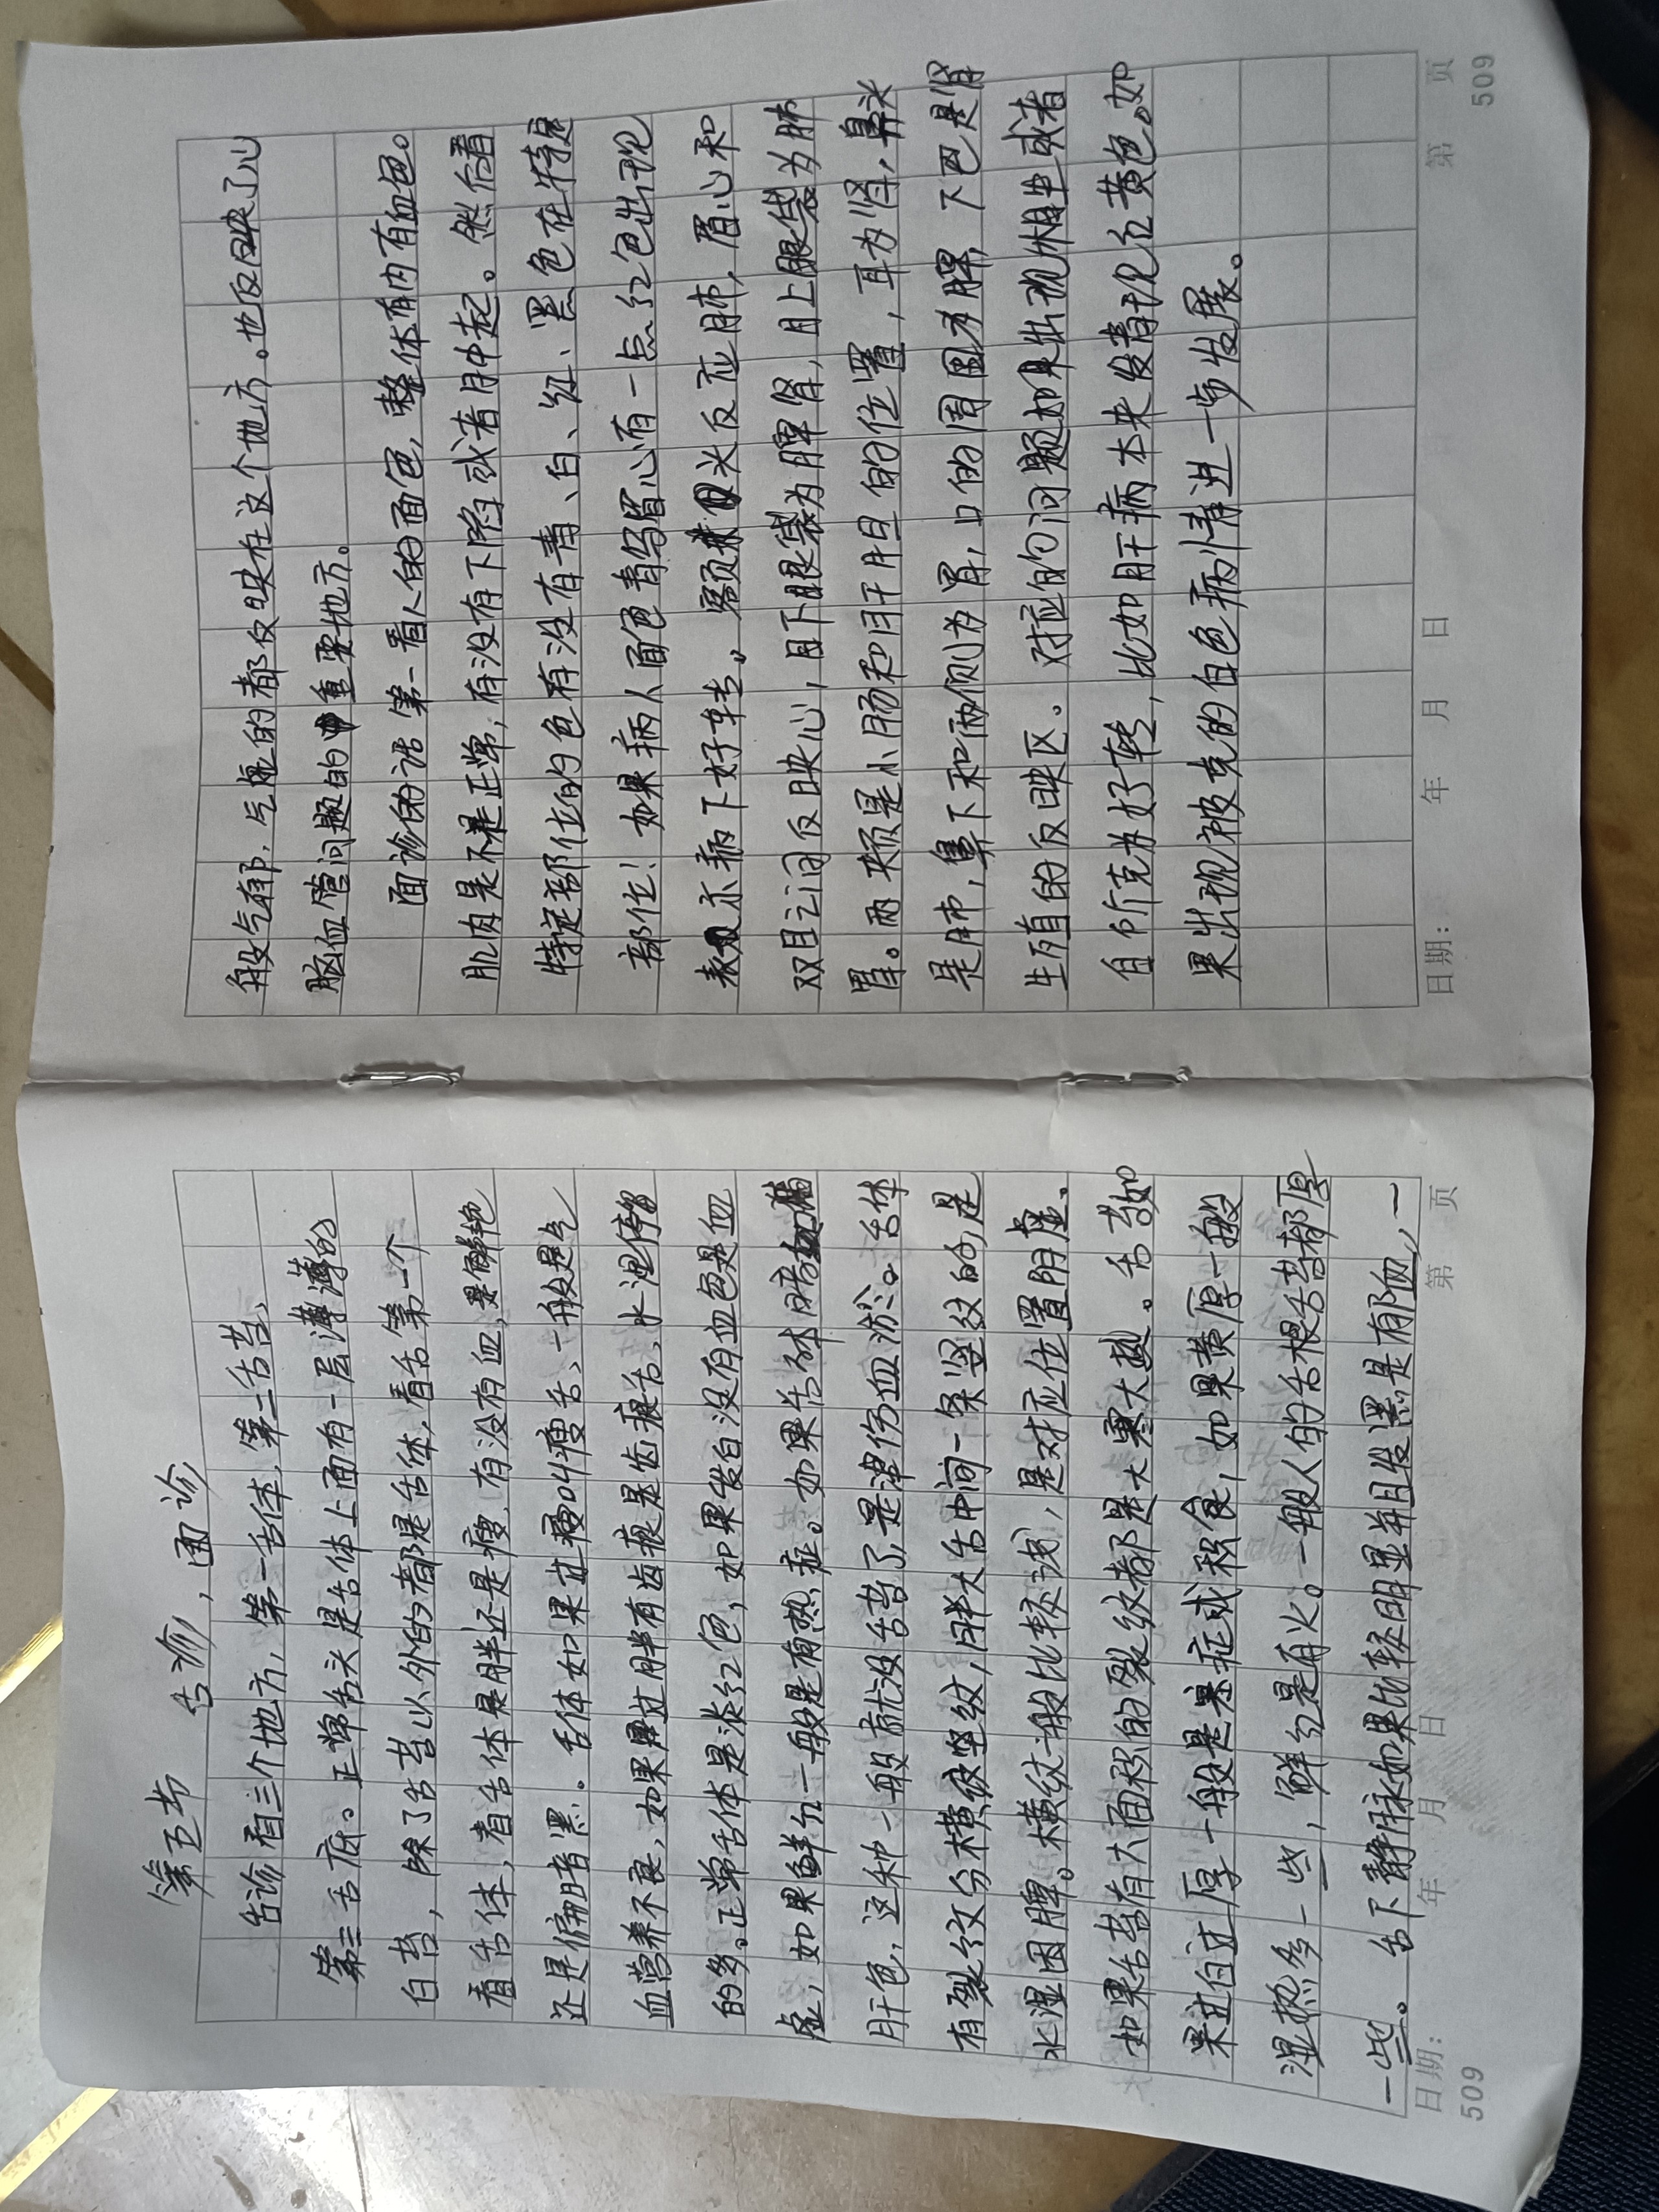 第五节 舌诊,面诊
舌诊看三个地方,第一舌体,第二舌苔、
第三舌底。正常舌头是舌体上面有一层薄薄的
白苔,除了舌苔以外的都是舌体,看舌第一个
看舌体,看舌体是胖还是瘦,有没有血,是鲜艳
还是偏暗黑。舌体如果过瘦叫瘦舌、一般是气
血营养不良,如果过胖有齿痕是齿痕舌、水湿停留
的多。正常舌体是淡红色,如果发白没有血色是血
虚,如果鲜红一般是有热症。如果舌体暗如猪
肝色,这种一般就没舌苔了,是津伤血淤。舌体
有裂纹分横纹竖纹,胖大舌中间一条竖纹的,是
水湿困脾。横纹一般比较浅,是对应位置阴虚.
如果舌苔有大面积的裂纹者都是大寒大热。舌苔如
果过白过厚一般是寒症或积食,如果黄厚一般
湿热多一些,鲜红是有火。一般人的舌根舌苔都厚
一些。舌下静脉如果比较明显并且发黑是有郁血,一
日期: 年 月 日 第 页
509
般气郁,气虚的都反映在这个地方。也反映了心
脑血管问题的重要地方。
面诊的话第一看人的面色,整体有内有血色。
肌肉是不是正常,有没有下陷或者月中起。然后看
特定部位的色有没有青、白、红、黑色在特定
部位!如果病人面色青乌眉心有一点红色出现
表示病下好转。额头反应肺,眉心和
双目之间反映心,目下眼袋为脾肾,目上眼袋为肺
胃。两夹颊是小肠和肝胆的位置,耳为肾,鼻头
是肺,鼻下和两侧为胃,口的周围为脾,下巴是肾
生殖的反映区。对应的问题如果出现相生或者
自所克为好转,比如肝病本来发青现红黄色。如
果出现被克的白色病情进一步发展。
日期: 年 月 日 第 页
509